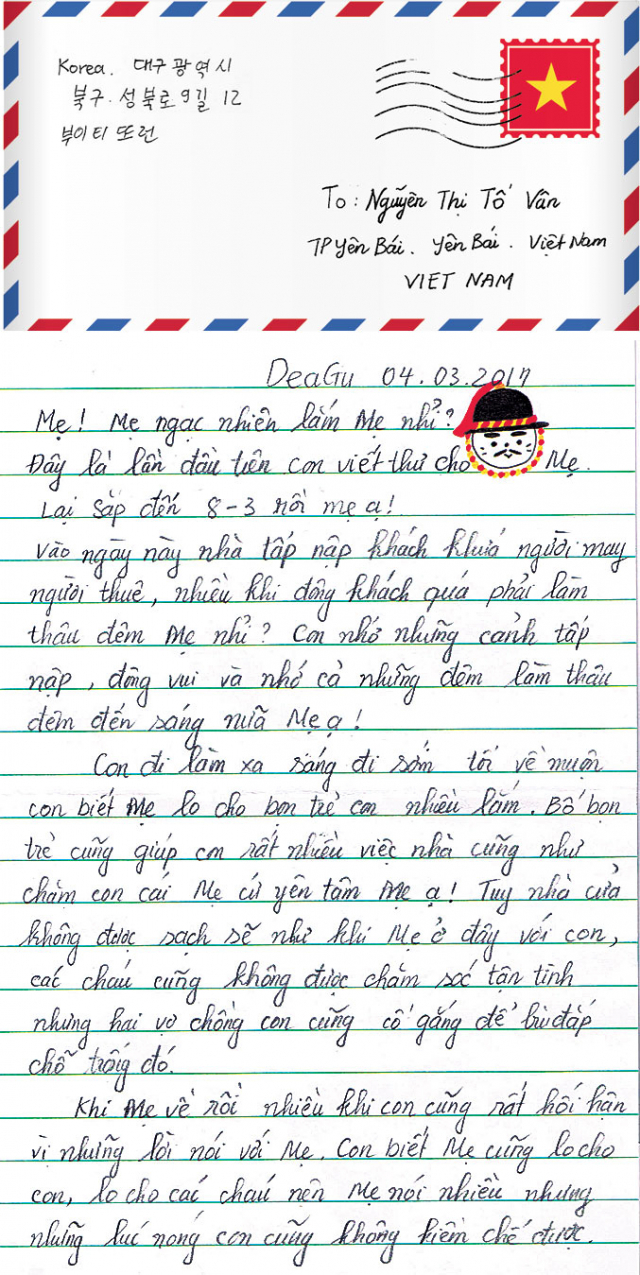 Korea. 대구광역시
북구. 성북로9길 12
부이티 뜨런
To: Nguyễn Thị Tố Vân
TP Yên Bái. Yên Bái. Việt Nam
VIET NAM
DeaGu 04.03.2017
Mẹ! Mẹ ngạc nhiên lắm Mẹ nhỉ?
Đây là lần đầu tiên con viết thư cho Mẹ.
Lại sắp đến 8-3 rồi mẹ ạ!
Vào ngày này nhà tấp nập khách khứa người may
người thuê, nhiều khi đông khách quá phải làm
thâu đêm Mẹ nhỉ? Con nhớ những cảnh tấp
nập, đông vui và nhớ cả những đêm làm thâu
đêm đến sáng nữa Mẹ ạ!
Con đi làm xa sáng đi sớm tối về muộn
con biết Mẹ lo cho bọn trẻ con nhiều lắm. Bố bọn
trẻ cũng giúp con rất nhiều việc nhà cũng như
chăm con cái Mẹ cứ yên tâm Mẹ ạ! Tuy nhà cửa
không được sạch sẽ như khi Mẹ ở đây với con,
các cháu cũng không được chăm sóc tận tình
nhưng hai vợ chồng con cũng cố gắng để bù đắp
chỗ trống đó.
Khi Mẹ về rồi nhiều khi con cũng rất hối hận
vì những lời nói với Mẹ. Con biết Mẹ cũng lo cho
con, lo cho các cháu nên Mẹ nói nhiều nhưng
những lúc nóng con cũng không kiềm chế được.